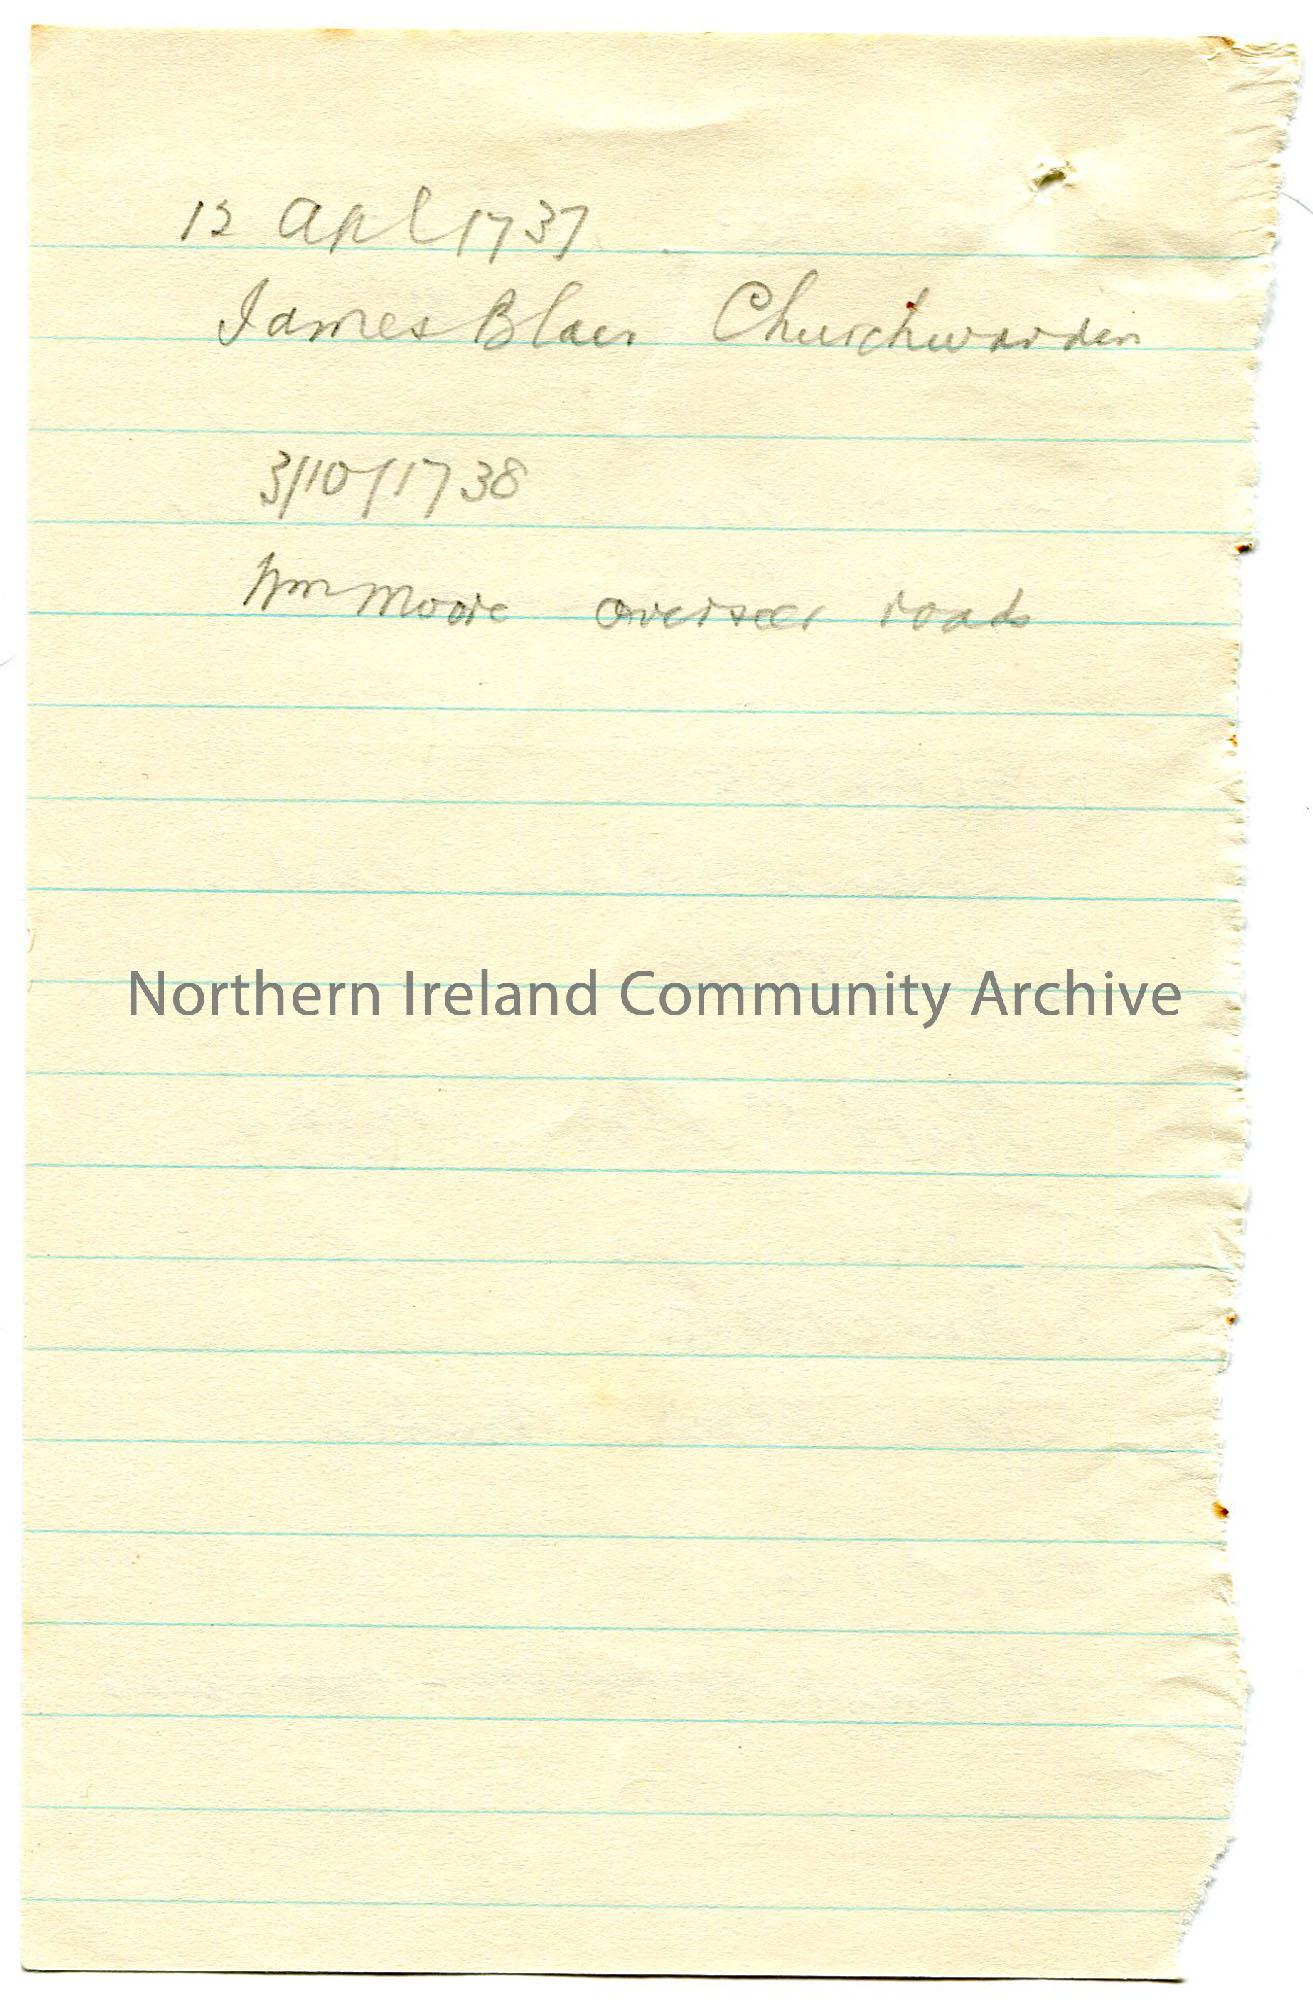 12 Apl 1737
James Blair Churchwarden
3/10/1738
Wm Moore overseer roads
Northern Ireland Community Archive